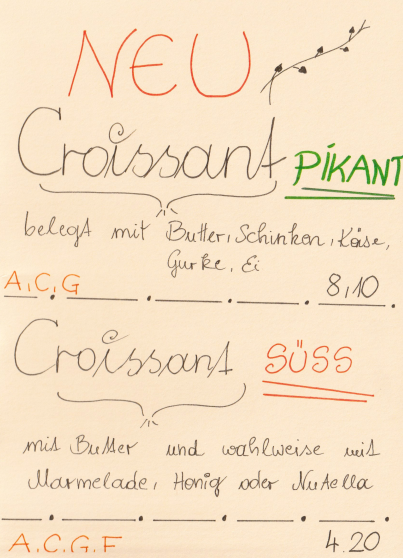 NEU
Croissant PIKANT
belegt mit Butter, Schinken, Käse,
Gurke, Ei
A, C, G 8,10
Croissant SÜSS
mit Butter und wahlweise mit
Marmelade, Honig oder Nutella
A. C. G. F 4.20